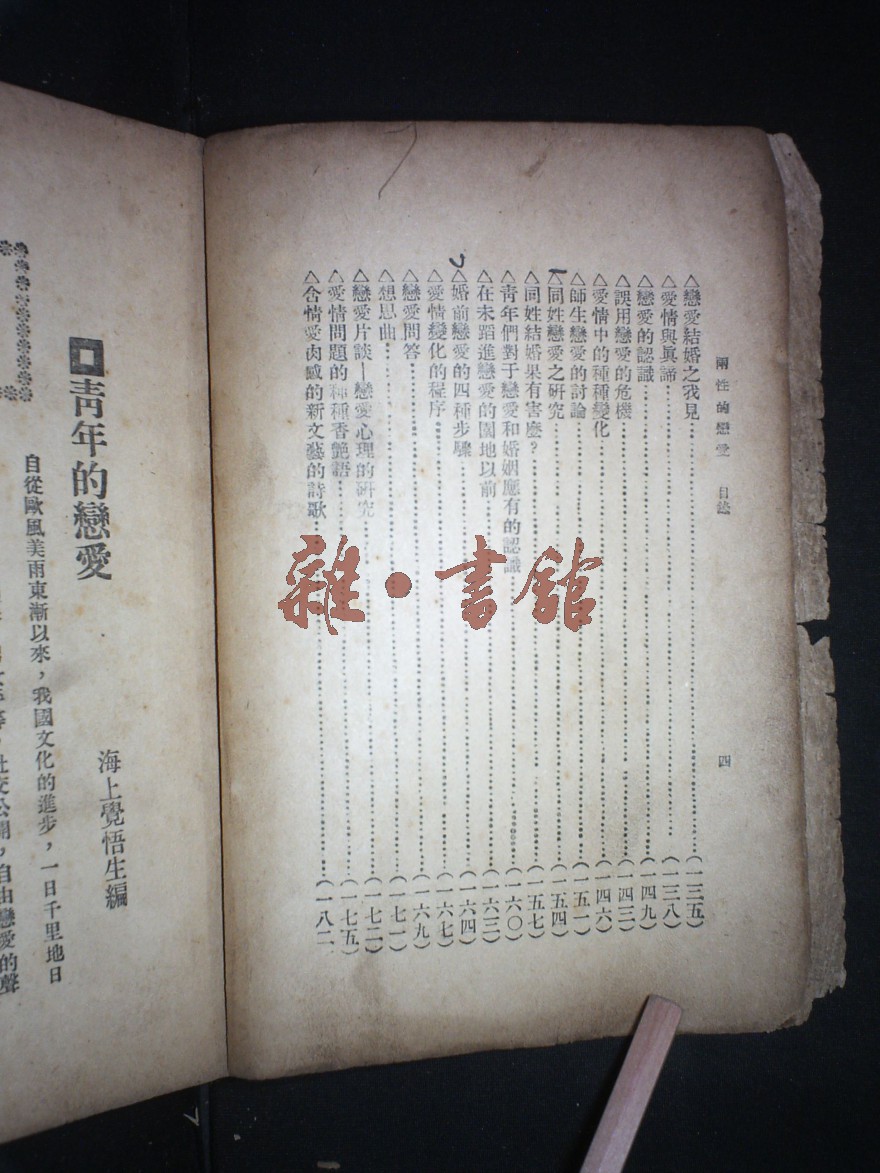 兩性的戀愛 目錄
四
△戀愛結婚之我見……(一三五)
△愛情與眞諦……(一三八)
△戀愛的認識……(一四九)
△誤用戀愛的危機……(一四三)
△愛情中的種種變化……(一四六)
△師生戀愛的討論……(一五一)
△同姓戀愛之硏究……(一五四)
△同姓結婚果有害麽?……(一五七)
△靑年們對于戀愛和婚姻應有的認識……(一六〇)
△在未蹈進戀愛的園地以前……(一六三)
△婚前戀愛的四種步驟……(一六四)
△愛情變化的程序……(一六七)
△戀愛問答……(一六九)
△想思曲……(一七一)
△戀愛片談—戀愛心理的硏究……(一七二)
△愛情問題的種種香艷語……(一七五)
△含情愛肉感的新文藝的詩歌……(一八二
雜·書館
靑年的戀愛
海上覺悟生編
自從歐風美雨東漸以來,我國文化的進步,一日千里地日
社交公開,自由戀愛的聲